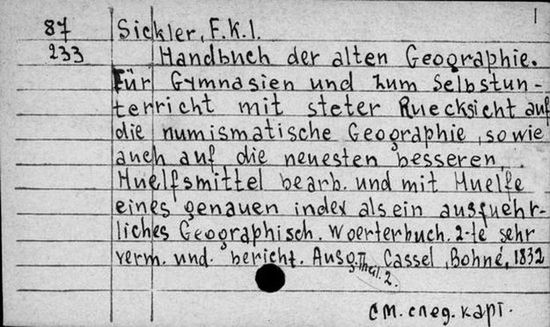 1
87 Sickler, F.K.l.
233 Handbuch der alten Geographie.
Für Gymnasien und zum Selbstun-
terricht mit steter Ruecksicht auf
die numismatische Geographie, sowie
auch auf die neuesten besseren
Huelfsmittel bearb. und mit Huelfe
eines genauen index als ein ausfuehr-
liches Geographisch. Woerterbuch. 2-te sehr
verm. und bericht. Ausg. II Theil. 2. Cassel, Bohné, 1832
см. след. карт.